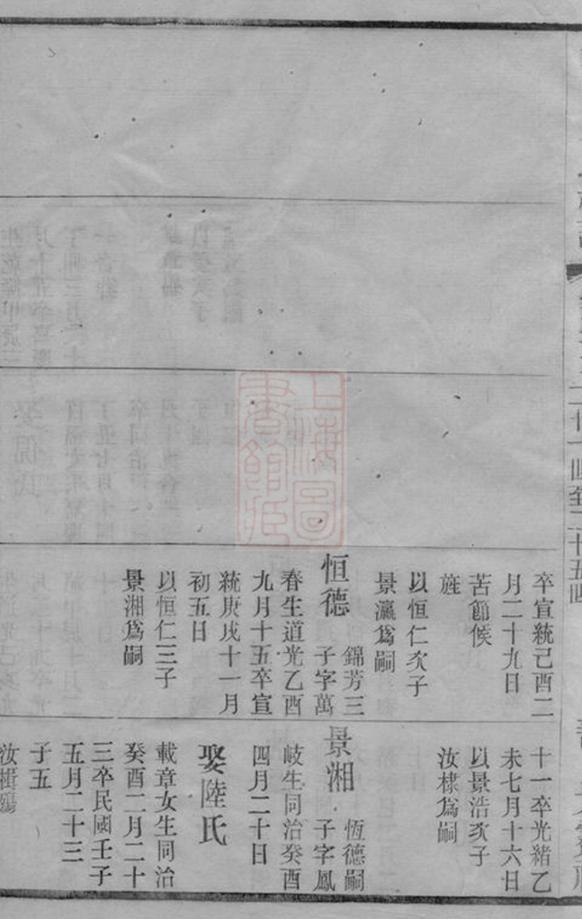 卒宣統己酉二
月二十九日
苦節候
旌
以恒仁次子
景瀛爲嗣
恒德
錦芳三
子字萬
春生道光乙酉
九月十五卒宣
統庚戌十一月
初五日
以恒仁三子
景湘爲嗣
十一卒光緒乙
未七月十六日
以景浩次子
汝棣爲嗣
景湘
恆德嗣
子字鳳
岐生同治癸酉
四月二十日
娶陸氏
載章女生同治
癸酉二月二十
三卒民國壬子
五月二十三
子五
汝楫殤
上海圖
書館藏